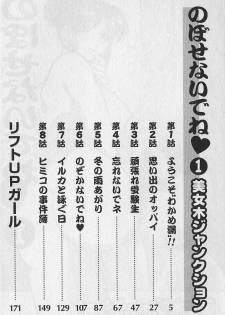 のぼせないでね♥1
美女木ジャンクション
第1話 ようこそ、わかめ湯!! 5
第2話 思い出のオッパイ 27
第3話 頑張れ受験生 47
第4話 忘れないでネ 67
第5話 冬の雨あがり 87
第6話 のぞかないでね♥ 107
第7話 イルカと泳ぐ日 129
第8話 ヒミコの事件簿 149
リフトUPガール 171